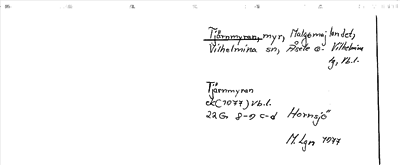 Tjärnmyran, myr, Malgomajlandet,
Vilhelmina sn, Åsele o. Vilhelmina
lg, Vb.l.
Tjärnmyran
ek (1077) Vb.l.
22G 8-9 c-d Hornsjö
M. Lgn 1977